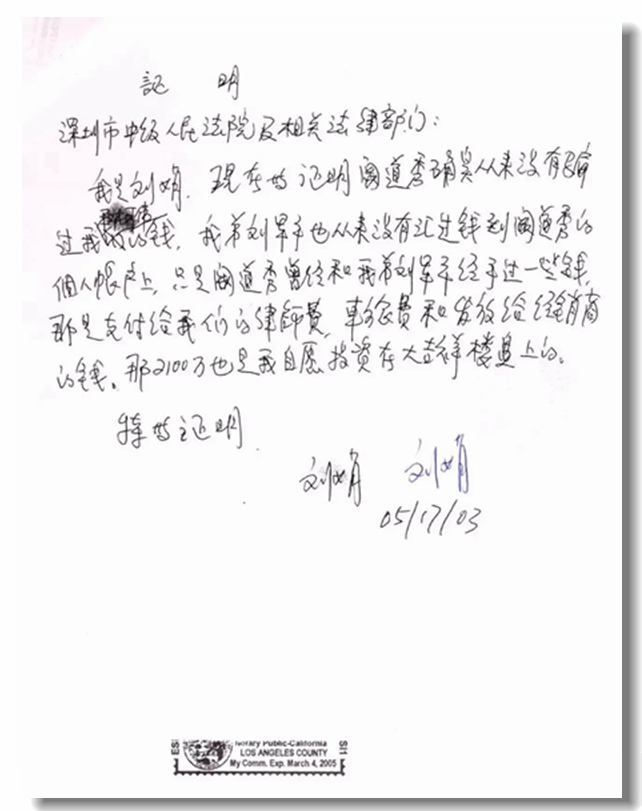 証 明
深圳市中级人民法院及相关法律部门：
我是刘娟．现在此证明阎道秀確实从来没有
过我的钱．我弟刘军平也从来没有汇过钱到阎道秀的
個人帳户上，只是阎道秀曾经和我弟刘军平经手过一些钱，
那是支付给我们的律師費，車旅费和发放给经销商
的钱。那2100万也是我自愿投资在大吉祥楼盘上的。
特此证明．
刘娟 刘娟
05/17/03
Notary Public-California
LOS ANGELES COUNTY
My Comm. Exp. March 4, 2005